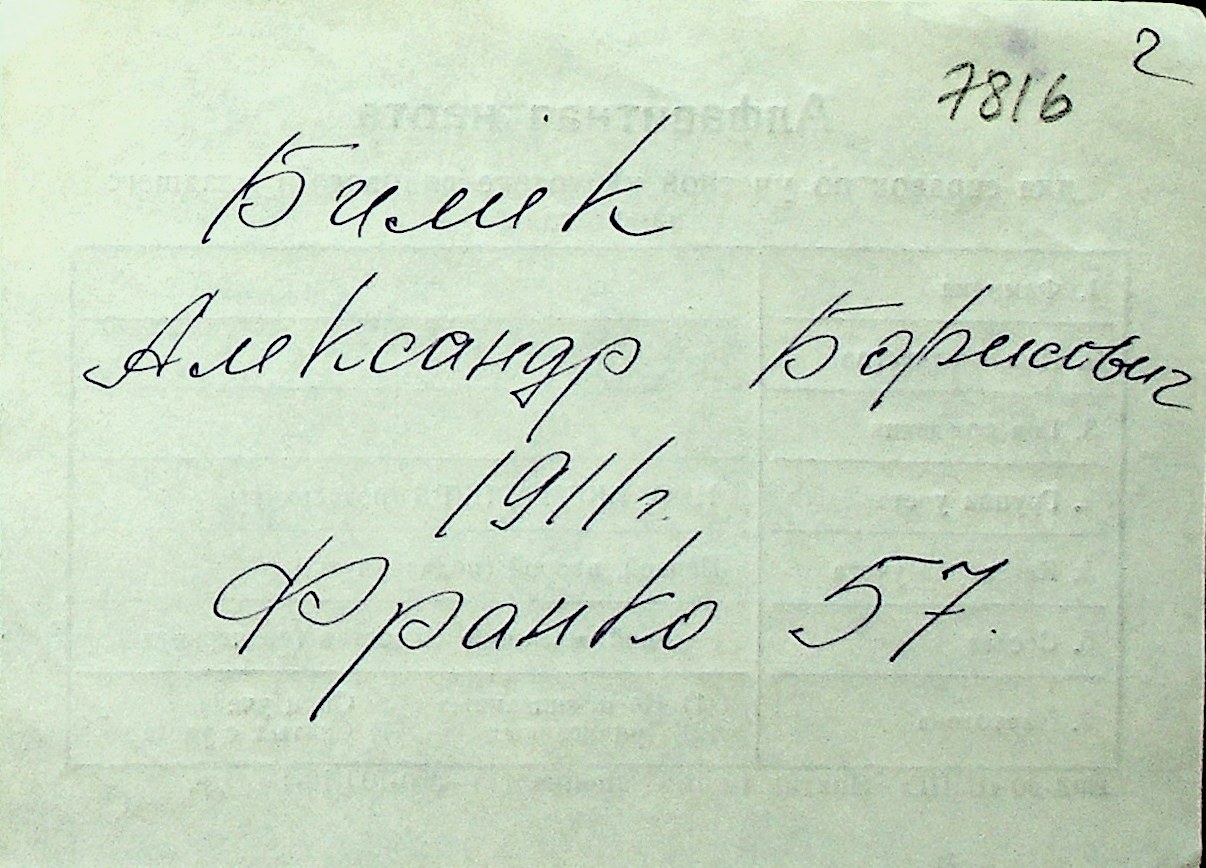 2
7816
Билик
Александр Борисович
1911г.
Франко 57.